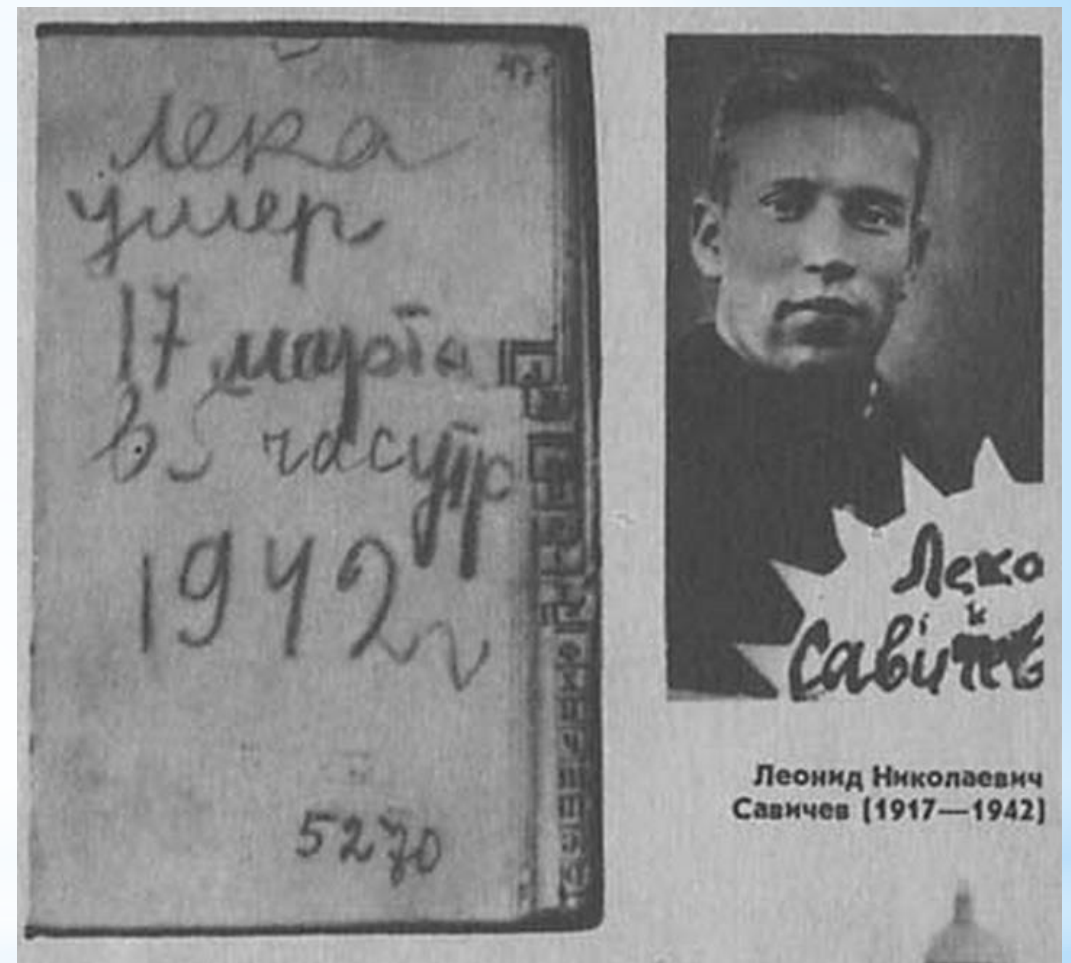 Лека
умер
17 марта
в 5 часутр
1942 г
5270
Лека
Савичев
Леонид Николаевич
Савичев (1917—1942)